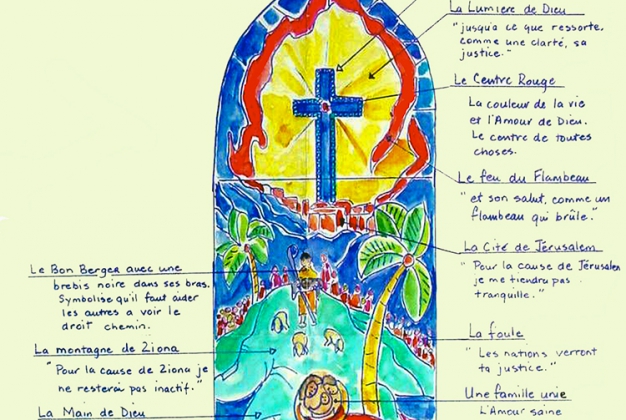 La Lumière de Dieu
"jusqu'à ce que ressorte,
comme une clarté, sa
justice."
Le Centre Rouge
La couleur de la vie
et l'Amour de Dieu.
Le centre de toutes
choses.
Le feu du Flambeau
"et son salut, comme un
flambeau qui brûle."
La Cité de Jérusalem
"Pour la cause de Jérusalem
je me tiendru pas
tranquille."
La foule
"Les nations verront
ta justice."
Une famille unie
L'Amour saine
Le Bon Berger avec une
brebis noire dans ses bras.
Symbolise qu'il faut aider
les autres a voir le
droit chemin.
La montagne de Ziona
"Pour la cause de Ziona je
ne resterai pas inactif."
La Main de Dieu